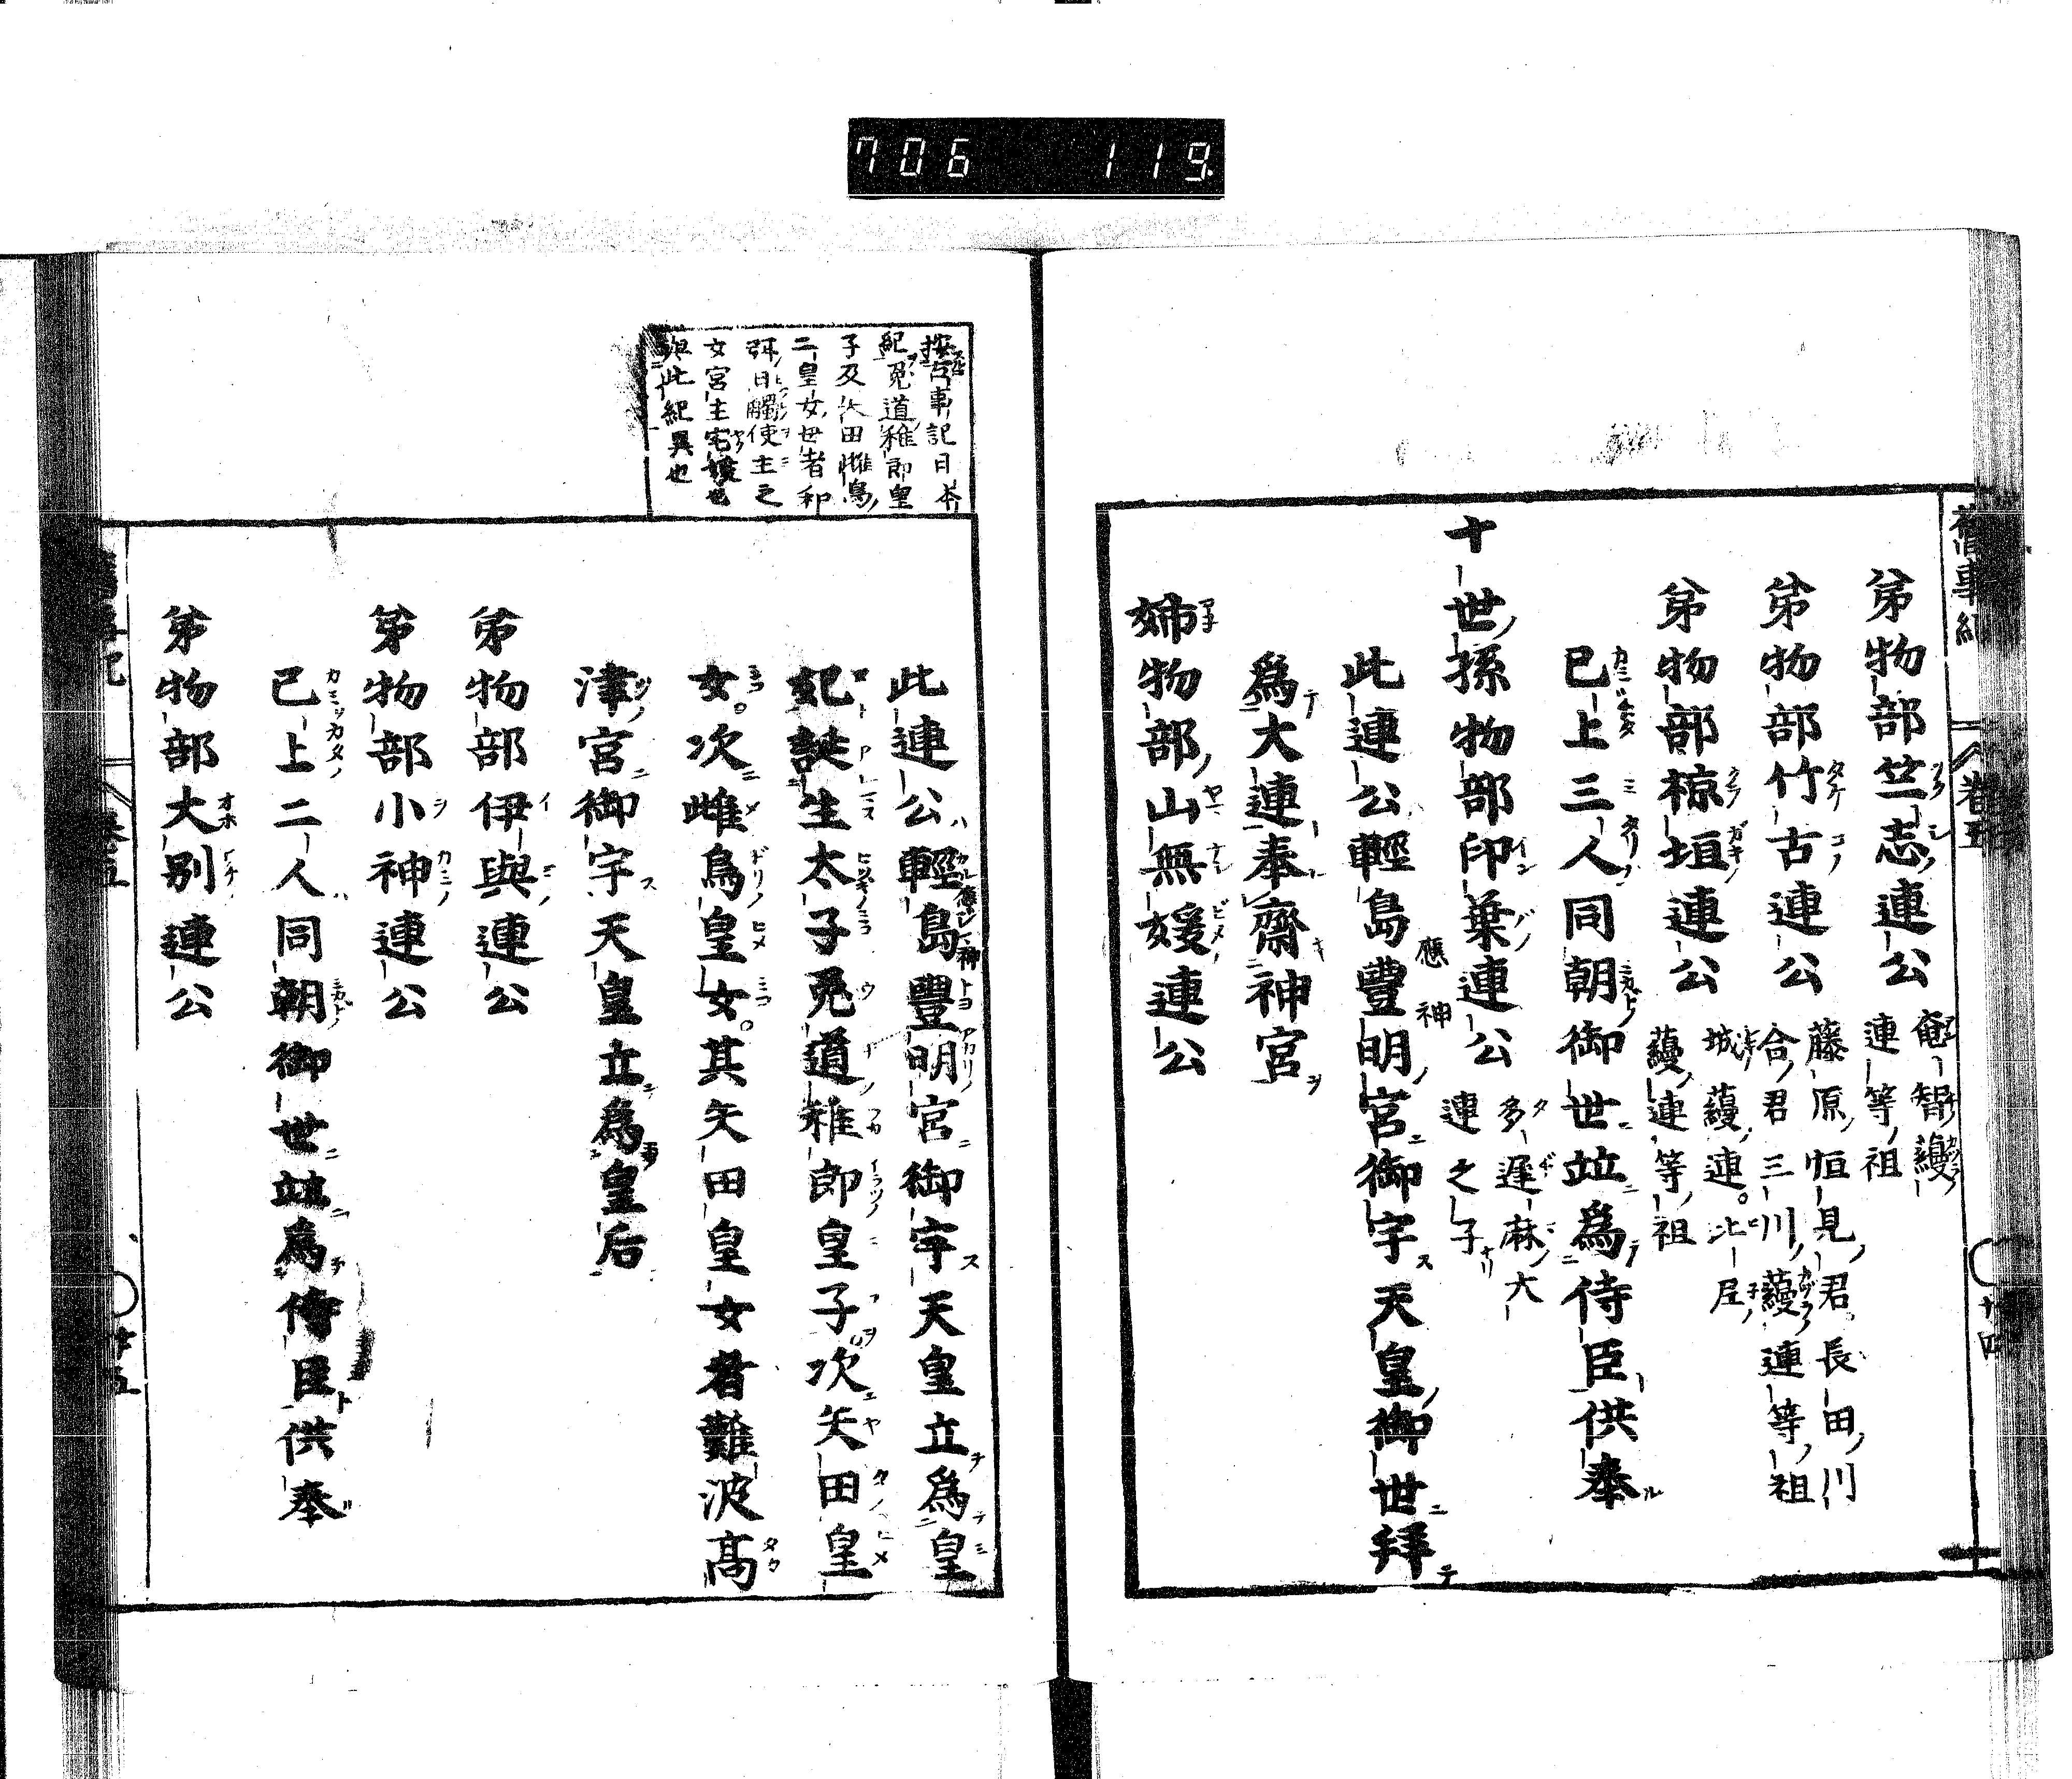 706 119
舊事紀
卷五
十四
弟物部竺志連公 奄智蘰
連等祖
弟物部竹古連公 藤原恒見君長田川
合君三川蘰連等祖
弟物部椋垣連公 城蘰連。比尼
蘰連等祖
已上三人同朝御世竝爲侍臣供奉
十世孫物部印葉連公 多遲麻大
連之子
此連公輕島豐明宮御宇天皇御世拜
應神
爲大連奉齋神宮
姉物部山無媛連公
按古事記日本
紀兎道稚郎皇
子及矢田雌鳥
二皇女母者和
珥日觸使主之
女宮主宅媛也
與此紀異也
此連公輕島豐明宮御宇天皇立爲皇
應神
妃誕生太子兎道稚郎皇子。次矢田皇
女。次雌鳥皇女。其矢田皇女者難波高
津宮御宇天皇立爲皇后
弟物部伊與連公
弟物部小神連公
已上二人同朝御世竝爲侍臣供奉
弟物部大別連公
卷五
廿五